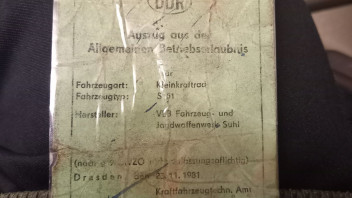 DDR
Auszug aus der
Allgemeinen Betriebserlaubnis
für
Fahrzeugart: Kleinkraftrad
Fahrzeugtyp: S 51
Hersteller: VEB Fahrzeug- und
Jagdwaffenwerk Suhl
(nach
Dresden, den 23.11.1981
Kraftfahrzeugtechn. Amt